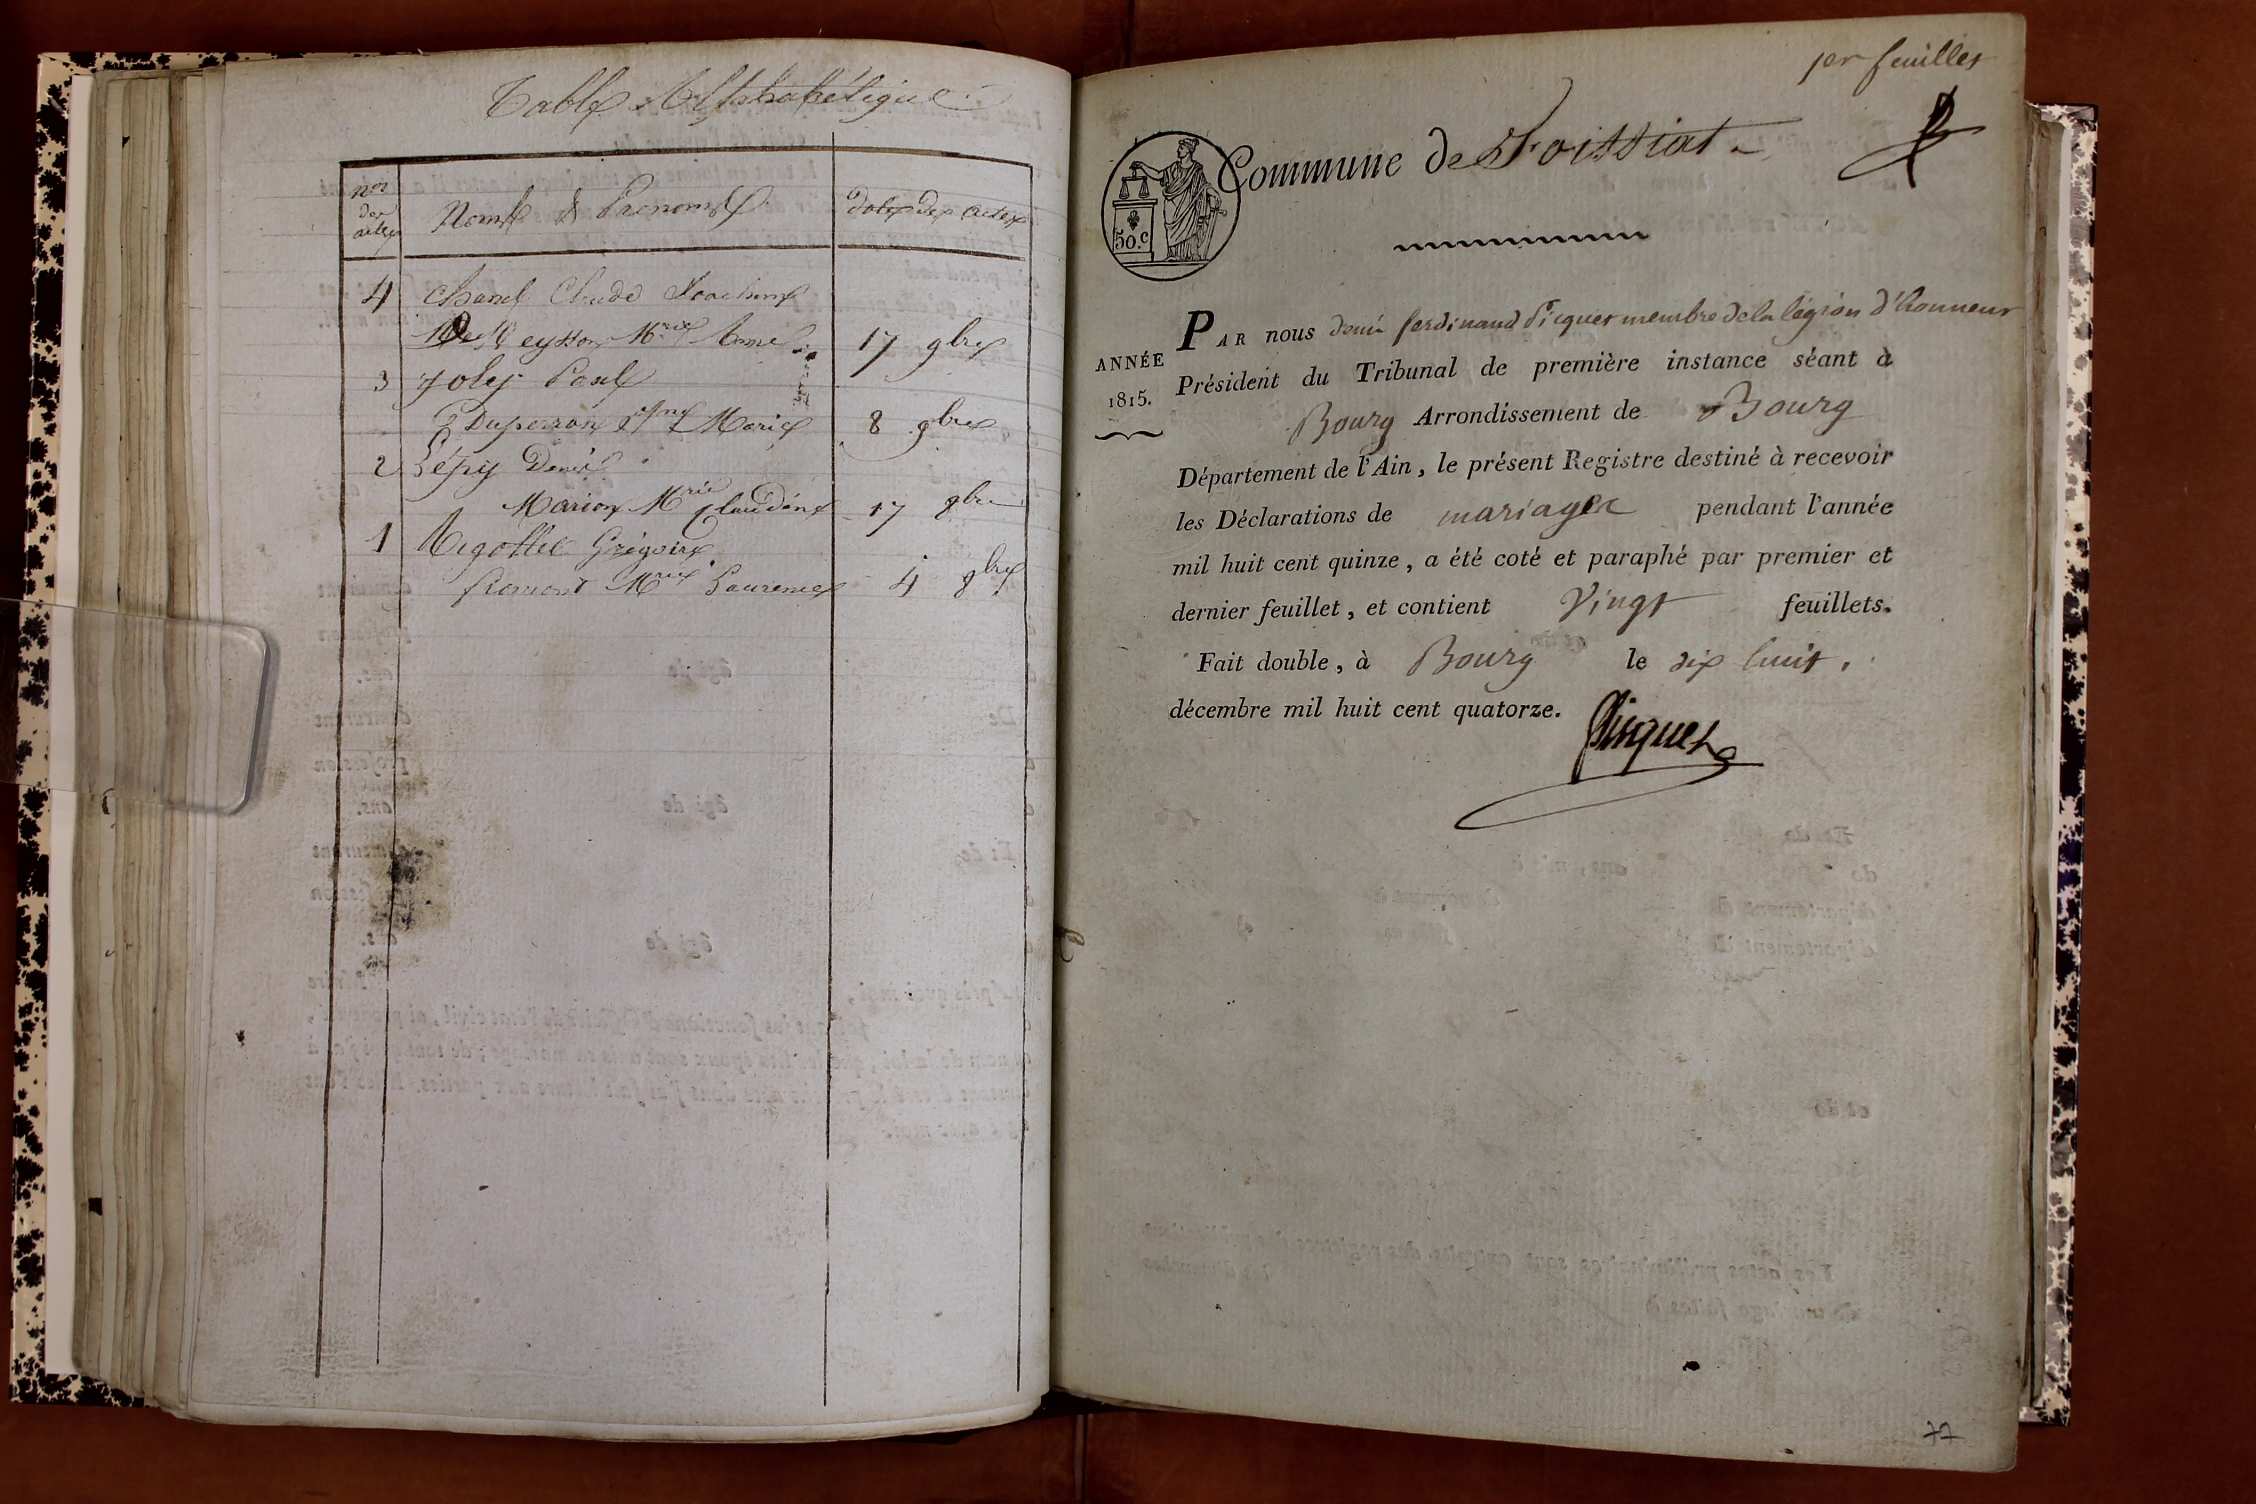 Table Alphabétique
nos des actes
Noms & Prenoms
dates des actes
4 Chanel Claude Joachim
Meysson Mrie Anne 17 9bre
3 Joly Paul
Duperron Marie 8 9bre
2 Pépy Denis
Marion Mrie Claudine 17 9bre
1 Migottet Grégoire
fromont Mrie Laurence 4 9bre
1er feuillet
Commune de Foissiat
50.c
ANNÉE
1815.
PAR nous denis ferdinand Picquet membre de la légion d'honneur
Président du Tribunal de première instance séant à
Bourg Arrondissement de Bourg
Département de l'Ain, le présent Registre destiné à recevoir
les Déclarations de mariages pendant l'année
mil huit cent quinze, a été coté et paraphé par premier et
dernier feuillet, et contient Vingt feuillets.
Fait double, à Bourg le dix huit,
décembre mil huit cent quatorze.
Picquet
77